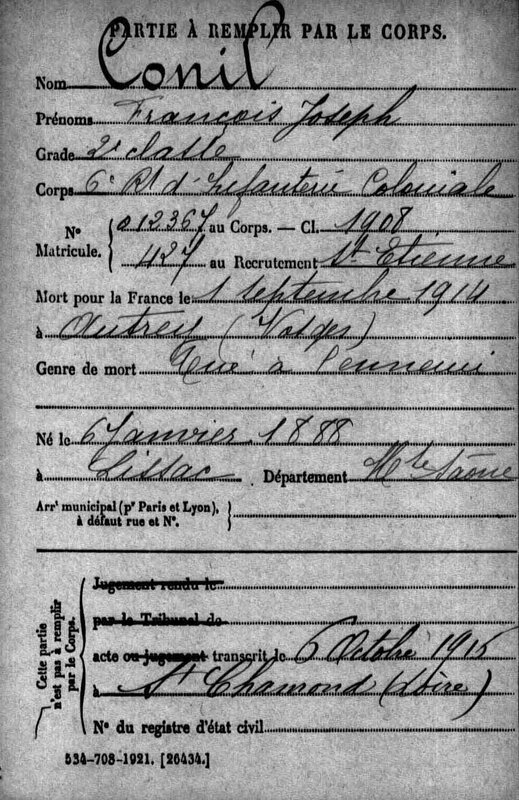 PARTIE À REMPLIR PAR LE CORPS.
Nom Conil
Prénoms François Joseph
Grade 2e classe
Corps 6e Rt d'Infanterie Coloniale
No Matricule. { 012367 au Corps. — Cl. 1908
427 au Recrutement St Etienne
Mort pour la France le 1 Septembre 1914
à Autrey (Vosges)
Genre de mort Tué à l'ennemi
Né le 6 Janvier 1888
à Lissac Département Hte Saône
Arrt municipal (pr Paris et Lyon), à défaut rue et No.
Cette partie n'est pas à remplir par le Corps.
Jugement rendu le
par le Tribunal de
acte ou jugement transcrit le 6 Octobre 1915
à St Chamond (Loire)
No du registre d'état civil
534-708-1921. [26434.]